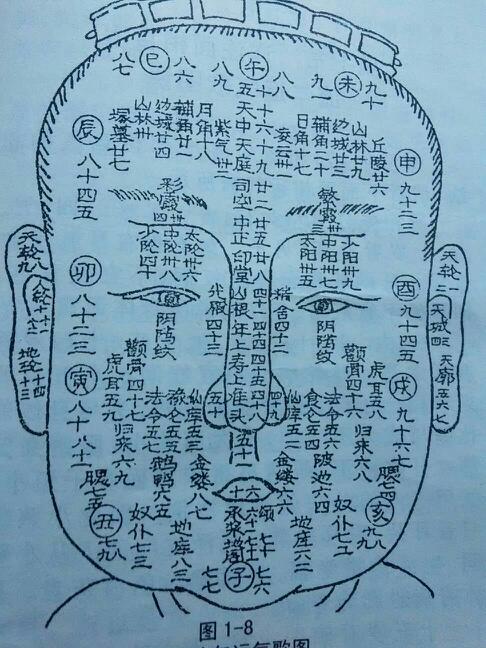 午
巳
未
八七
八六
八九
八八
九一
九十
辰
八十四五
塚墓廿七
山林卅
边城廿四
辅角廿一
月角十八
紫气卅二
五天中天庭司空中正印堂山根年上寿上准头
十六
十九
廿二
廿五
廿八
凌云卅一
日角十七
辅角二十
边城廿三
山林廿九
丘陵廿六
申
九十二三
彩霞卅四
繁霞卅三
少陀四十
中陀卅八
太陀卅六
太阳卅五
中阳卅七
少阳卅九
阴骘纹
阴骘纹
光殿四十三
精舍四十二
四十一
四十四
四十五
四十八
天轮八九
人轮十十一十二
地轮十三十四
天轮一二
天城三四
天廓五六七
卯
八十二三
寅
八十八十一
酉
九十四五
戌
九十六七
颧骨四十七
颧骨四十六
虎耳五九
虎耳五八
归来六九
归来六八
法令五七
法令五六
禄仓五五
食仓五四
仙库五三
仙库五二
五十
四十九
五十一
鹅鸭六五
陂池六四
金缕六七
金缕六六
腮七五
腮七四
丑
七九八
亥
奴仆七三
奴仆七二
地库六三
地库六二
六十
承浆地阁
六十一
七十一
颂七十
子
七七
七六
图1-8